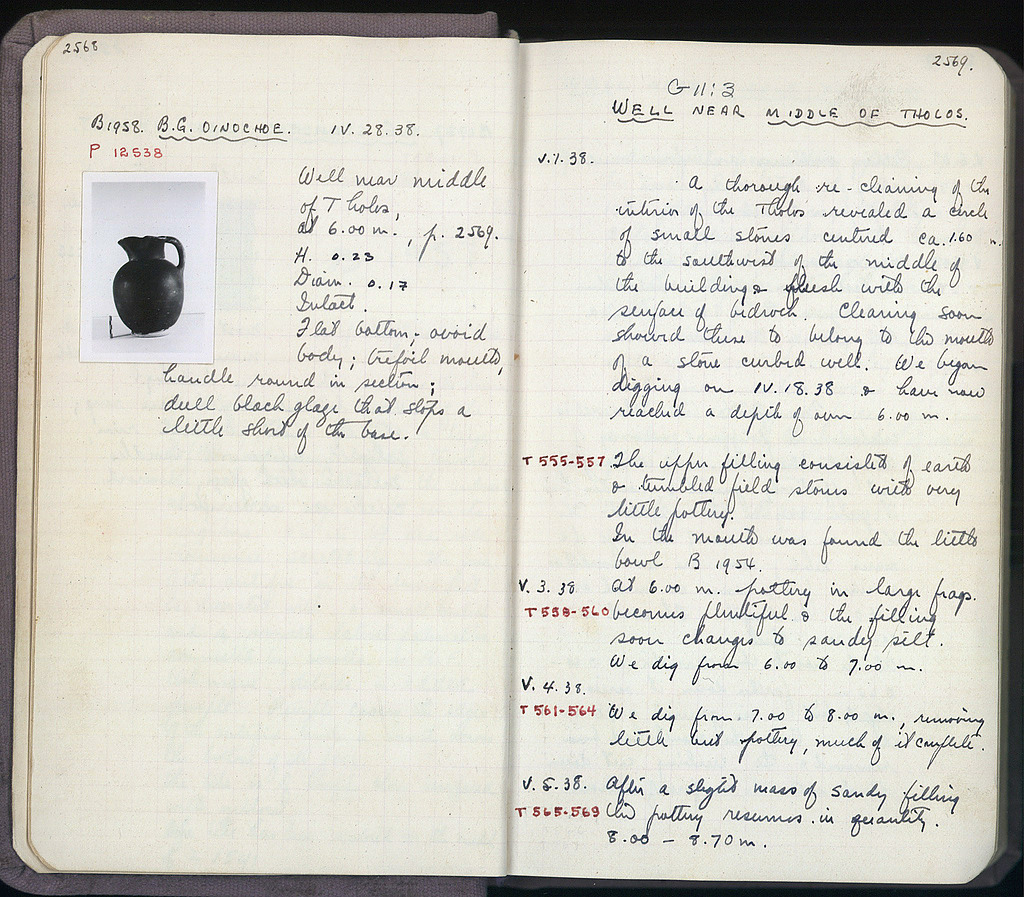 2568
B1958. B.G. OINOCHOE. IV. 28. 38.
P 12538
Well near middle
of Tholos,
at 6.00 m., p. 2569.
H. 0.23
Diam. 0.17
Intact.
Flat bottom; ovoid
body; trefoil mouth,
handle round in section;
dull black glaze that stops a
little short of the base.
2569.
G 11:3
WELL NEAR MIDDLE OF THOLOS.
V.1.38.
A thorough re-cleaning of the
interior of the Tholos revealed a circle
of small stones centered ca. 1.60 m.
to the southwest of the middle of
the building & flush with the
surface of bedrock. Cleaning soon
showed these to belong to the mouth
of a stone curbed well. We began
digging on IV.18.38 & have now
reached a depth of over 6.00 m.
T 555-557 The upper filling consisted of earth
& tumbled field stones with very
little pottery.
In the mouth was found the little
bowl B 1954.
V. 3. 38 At 6.00 m. pottery in large frags.
T 558-560 becomes plentiful & the filling
soon changes to sandy silt.
We dig from 6.00 to 7.00 m.
V. 4. 38.
T 561-564 We dig from 7.00 to 8.00 m., removing
little but pottery, much of it complete.
V. 5. 38. After a slight mass of sandy filling
T 565-569 the pottery resumes in quantity.
8.00 – 8.70 m.